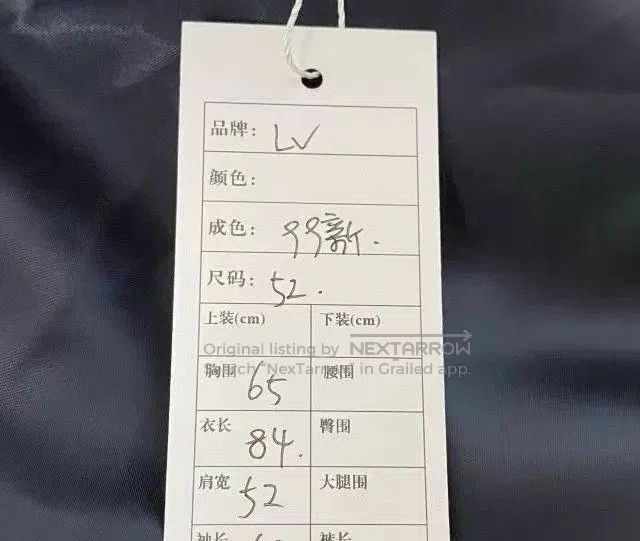 品牌: LV
颜色:
成色: 99新.
尺码: 52.
上装(cm) 下装(cm)
Original listing by NEXTARROW
Search "NexTarrow" in Grailed app.
胸围 65 腰围
衣长 84. 臀围
肩宽 52 大腿围
袖长 裤长